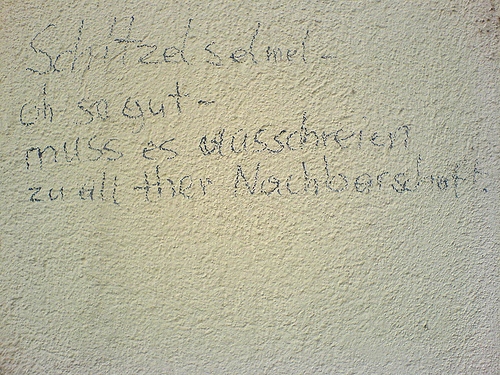 Schitzel selmel -
oh so gut -
muss es ausschreien
zu all ther Nachbarschaft.